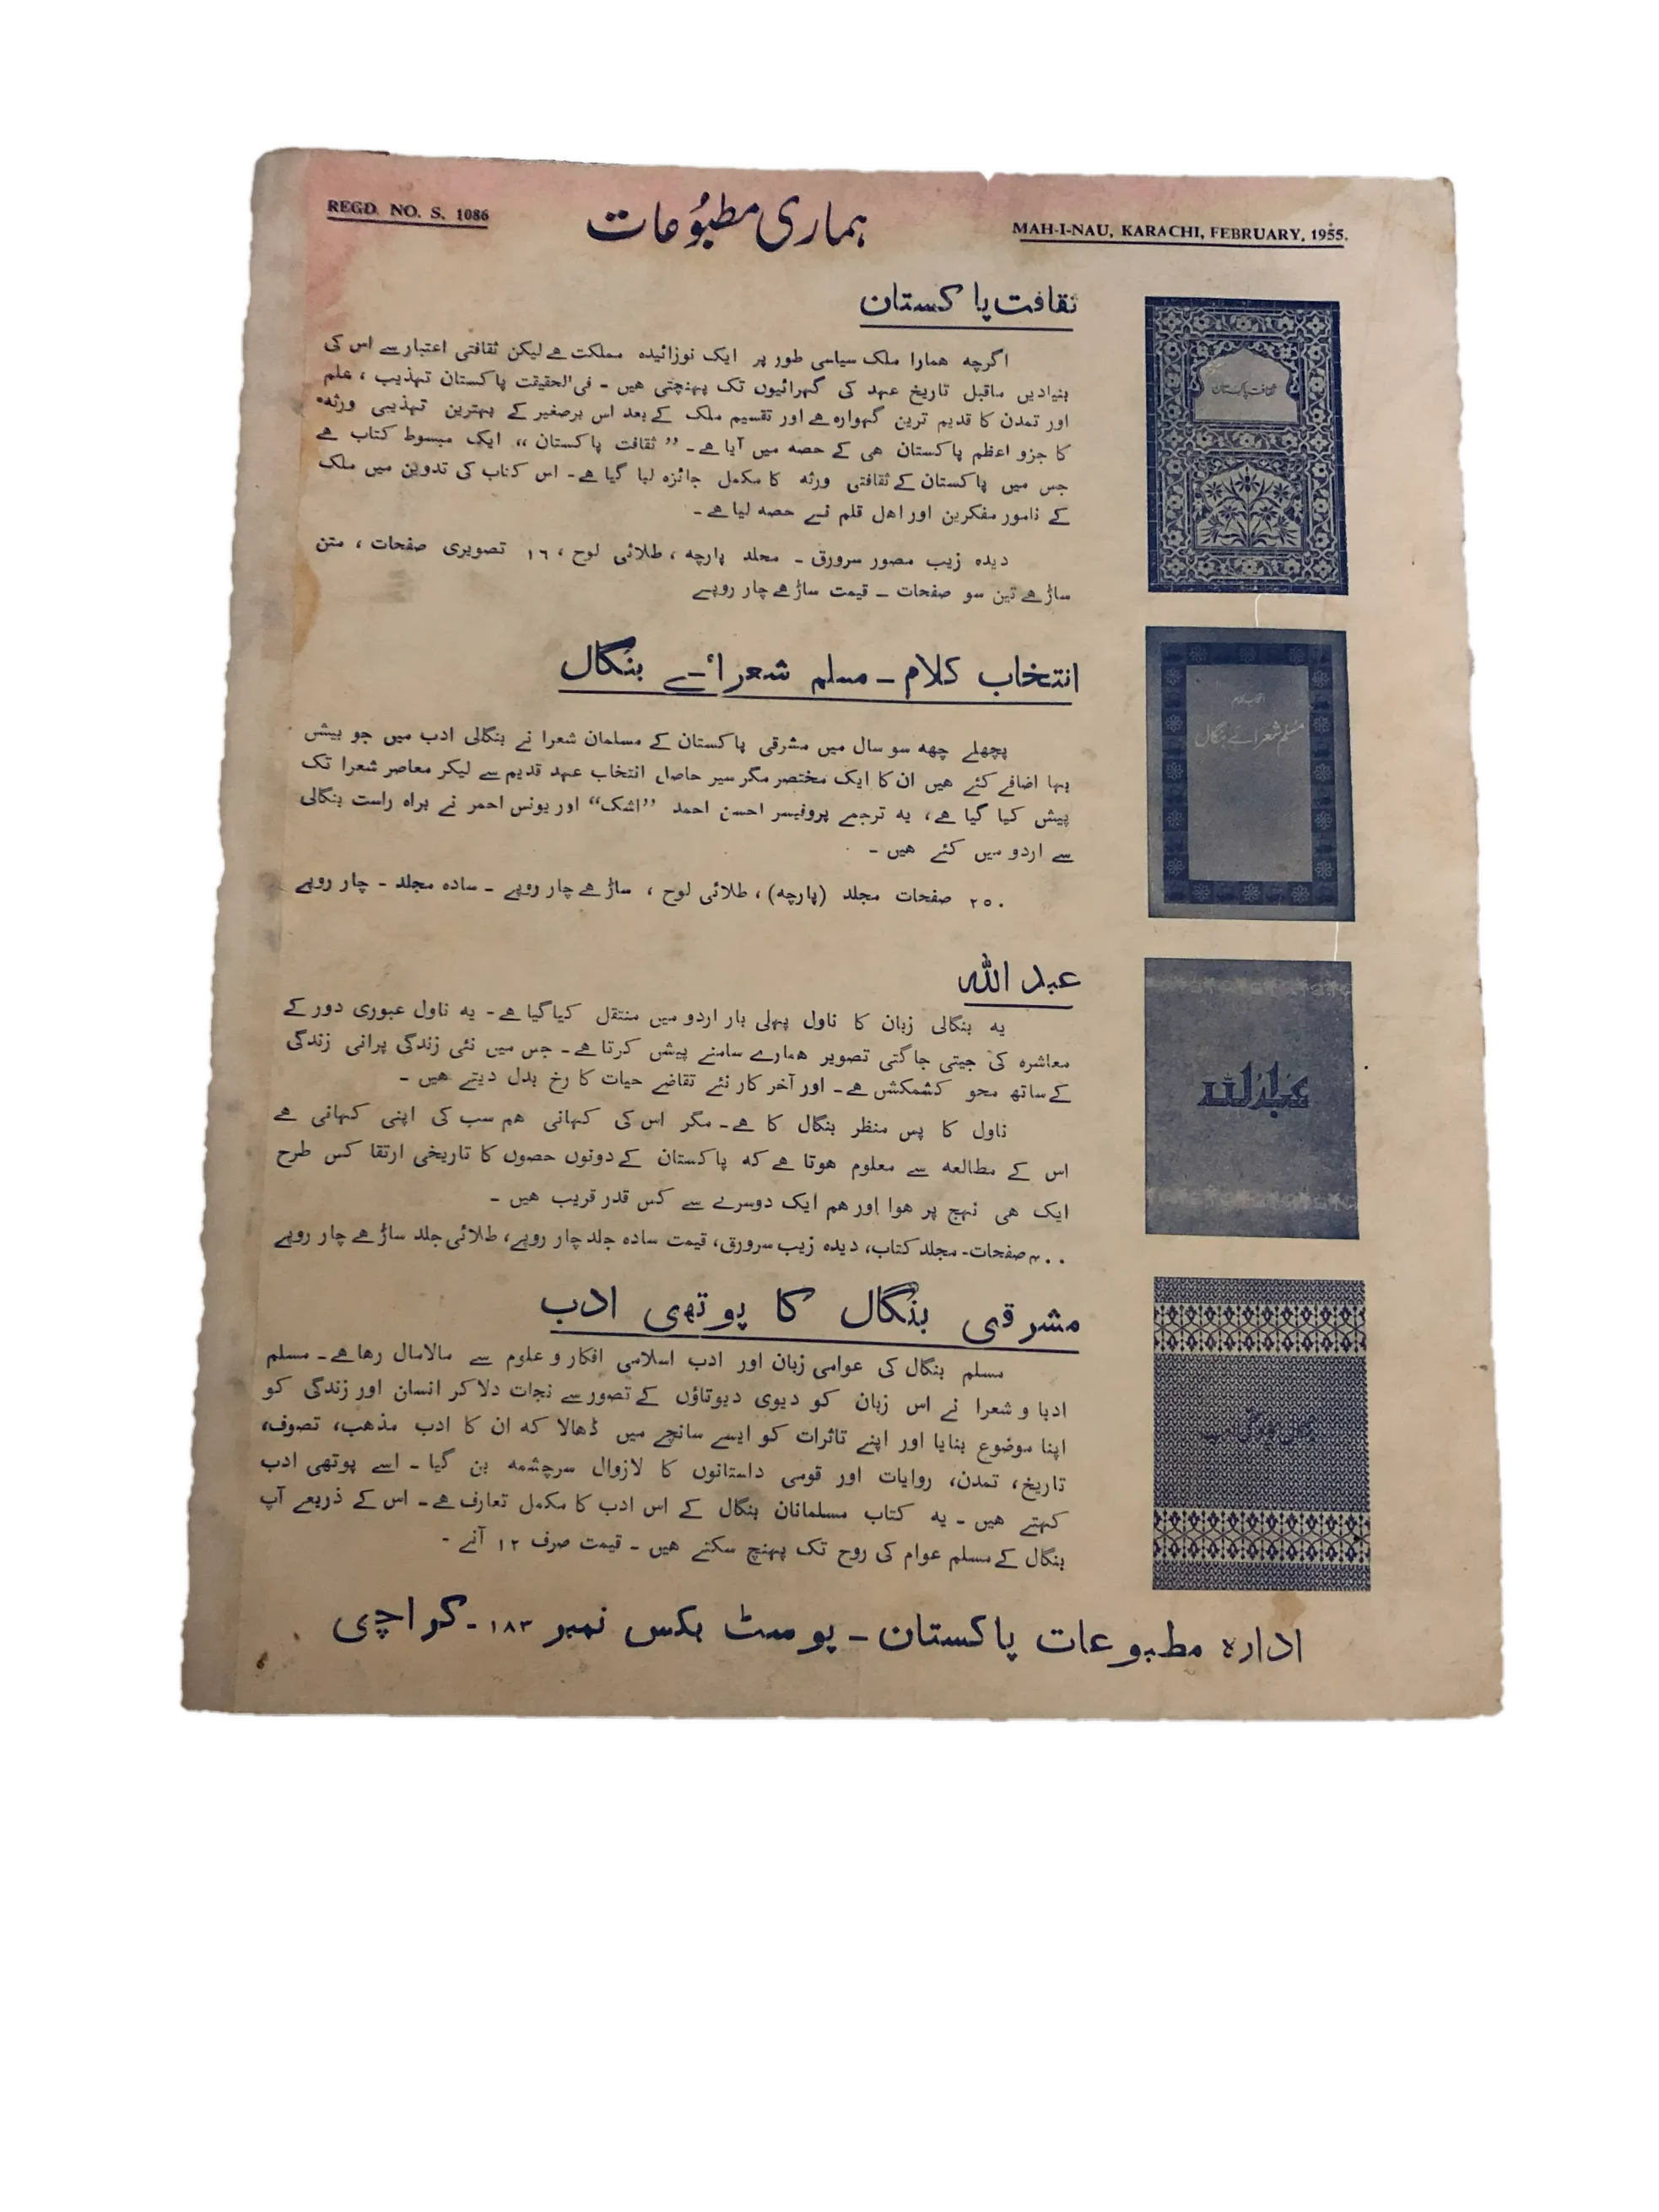 REGD. NO. S. 1086
ہماری مطبُوعات
MAH-I-NAU, KARACHI, FEBRUARY, 1955.
ثقافت پاکستان
اگرچہ ہمارا ملک سیاسی طور پر ایک نوزائیدہ مملکت ہے لیکن ثقافتی اعتبار سے اس کی
بنیادیں ماقبل تاریخ عہد کی گہرائیوں تک پہنچتی ہیں ۔ فی الحقیقت پاکستان تہذیب ، علم
اور تمدن کا قدیم ترین گہوارہ ہے اور تقسیم ملک کے بعد اس برصغیر کے بہترین تہذیبی ورثہ
کا جزو اعظم پاکستان ہی کے حصہ میں آیا ہے ۔ ”ثقافت پاکستان“ ایک مبسوط کتاب ہے
جس میں پاکستان کے ثقافتی ورثہ کا مکمل جائزہ لیا گیا ہے۔ اس کتاب کی تدوین میں ملک
کے نامور مفکرین اور اہل قلم نے حصہ لیا ہے ۔
دیدہ زیب مصور سرورق ۔ مجلد پارچہ ، طلائی لوح ، ۱٦ تصویری صفحات ، متن
ساڑھے تین سو صفحات ۔ قیمت ساڑھے چار روپے
ثقافت پاکستان
انتخاب کلام ۔ مسلم شعرائے بنگال
پچھلے چھہ سو سال میں مشرقی پاکستان کے مسلمان شعرا نے بنگالی ادب میں جو بیش
بہا اضافے کئے ہیں ان کا ایک مختصر مگر سیر حاصل انتخاب عہد قدیم سے لیکر معاصر شعرا تک
پیش کیا گیا ہے، یہ ترجمے پروفیسر احسن احمد ”اشک“ اور یونس احمر نے براہ راست بنگالی
سے اردو میں کئے ہیں ۔
۲۵۰ صفحات مجلد (پارچہ) ، طلائی لوح ، ساڑھے چار روپے ۔ سادہ مجلد ۔ چار روپے
انتخاب کلام
مسلم شعرائے بنگال
عبد اللہ
یہ بنگالی زبان کا ناول پہلی بار اردو میں منتقل کیا گیا ہے۔ یہ ناول عبوری دور کے
معاشرہ کی جیتی جاگتی تصویر ہمارے سامنے پیش کرتا ہے۔ جس میں نئی زندگی پرانی زندگی
کے ساتھ محو کشمکش ہے۔ اور آخر کار نئے تقاضے حیات کا رخ بدل دیتے ہیں ۔
ناول کا پس منظر بنگال کا ہے ۔ مگر اس کی کہانی ہم سب کی اپنی کہانی ہے
اس کے مطالعہ سے معلوم ہوتا ہے کہ پاکستان کے دونوں حصوں کا تاریخی ارتقا کس طرح
ایک ہی نہج پر ہوا اور ہم ایک دوسرے سے کس قدر قریب ہیں ۔
۴۰۰ صفحات۔ مجلد کتاب، دیدہ زیب سرورق، قیمت سادہ جلد چار روپے، طلائی جلد ساڑھے چار روپے
عبداللہ
مشرقی بنگال کا پوتھی ادب
مسلم بنگال کی عوامی زبان اور ادب اسلامی افکار و علوم سے مالامال رہا ہے ۔ مسلم
ادبا و شعرا نے اس زبان کو دیوی دیوتاؤں کے تصور سے نجات دلا کر انسان اور زندگی کو
اپنا موضوع بنایا اور اپنے تاثرات کو ایسے سانچے میں ڈھالا کہ ان کا ادب مذہب، تصوف،
تاریخ، تمدن، روایات اور قومی داستانوں کا لازوال سرچشمہ بن گیا ۔ اسے پوتھی ادب
کہتے ہیں ۔ یہ کتاب مسلمانان بنگال کے اس ادب کا مکمل تعارف ہے۔ اس کے ذریعے آپ
بنگال کے مسلم عوام کی روح تک پہنچ سکتے ہیں ۔ قیمت صرف ۱۲ آنے ۔
ادارہ مطبوعات پاکستان ۔ پوسٹ بکس نمبر ۱۸۳ ۔ کراچی